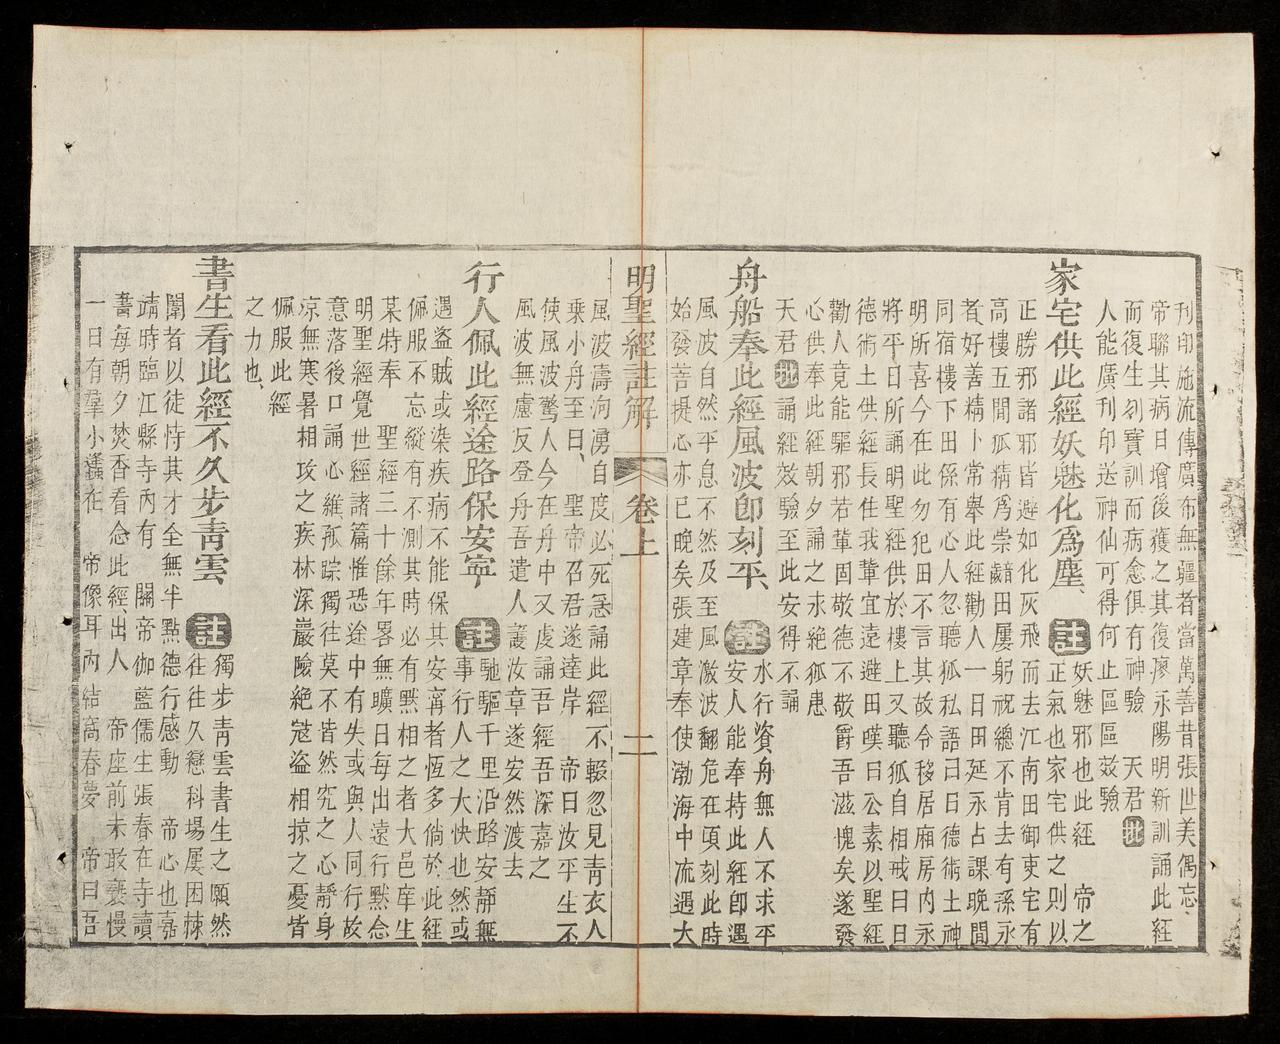 刊印施流傳廣布無疆者當萬善昔張世美偶忘
帝聯其病日增後獲之其復廖永陽明新訓誦此經
而復生刻寶訓而病愈俱有神驗　天君批
人能廣刊印送神仙可得何止區區效驗
家宅供此經妖魅化為塵、註妖魅邪也此經　帝之
正氣也家宅供之則以
正勝邪諸邪皆避如化灰飛而去江南田御吏宅有
高樓五間狐精為祟齸田屢躬祝總不肯去有孫永
者好善精卜常舉此經勸人一日田延永占課晚間
同宿樓下田係有心人忽聽狐私語曰日德術土神
明所喜今在此勿犯田不言其故令移居廂房內永
將平日所誦明聖經供於樓上又聽狐自相戒曰日
德術土供經長住我輩宜遠避田嘆曰公素以聖經
勸人竟能驅邪若輩固敬德不敬爵吾滋愧矣遂發
心供奉此經朝夕誦之永絶狐患
天君批誦經效驗至此安得不誦
舟船奉此經風波即刻平、註水行資舟無人不求平
安人能奉持此經即遇
風波自然平息不然及至風激波翻危在頃刻此時
始發菩提心亦已晚矣張建章奉使渤海中流遇大
明聖經註解　卷上　二
風波濤洶湧自度必死急誦此經不輟忽見靑衣人
乘小舟至曰、聖帝召君遂達岸　帝曰汝平生不
使風波驚人今在舟中又虔誦吾經吾深嘉之
風波無慮反登舟吾遣人護汝章遂安然渡去
行人佩此經途路保安寧　註馳驅千里沿路安靜無
事行人之大快也然或
遇盜賊或染疾病不能保其安甯者恆多倘於此經
佩服不忘縱有不測其時必有默相之者大邑庠生
某特奉　聖經三十餘年畧無曠日每出遠行默念
明聖經覺世經諸篇惟恐途中有失或與人同行故
意落後口誦心維孤踪獨往莫不皆然究之心靜身
凉無寒暑相攻之疾林深巖險絶寇盜相掠之憂皆
佩服此經
之力也、
書生看此經不久步靑雲　註獨步靑雲書生之願然
往往久戀科場屢困棘
闈者以徒恃其才全無半點德行感動　帝心也嘉
靖時臨江縣寺內有　關帝伽藍儒生張春在寺讀
書每朝夕焚香看念此經出人　帝座前未敢褻慢
一日有羣小蠭在　帝像耳內結窩春夢　帝曰吾